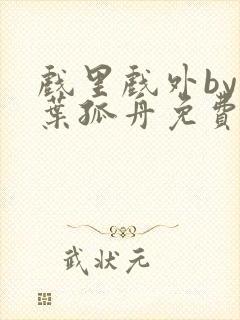 戲里戲外by
葉孤舟免費
武状元